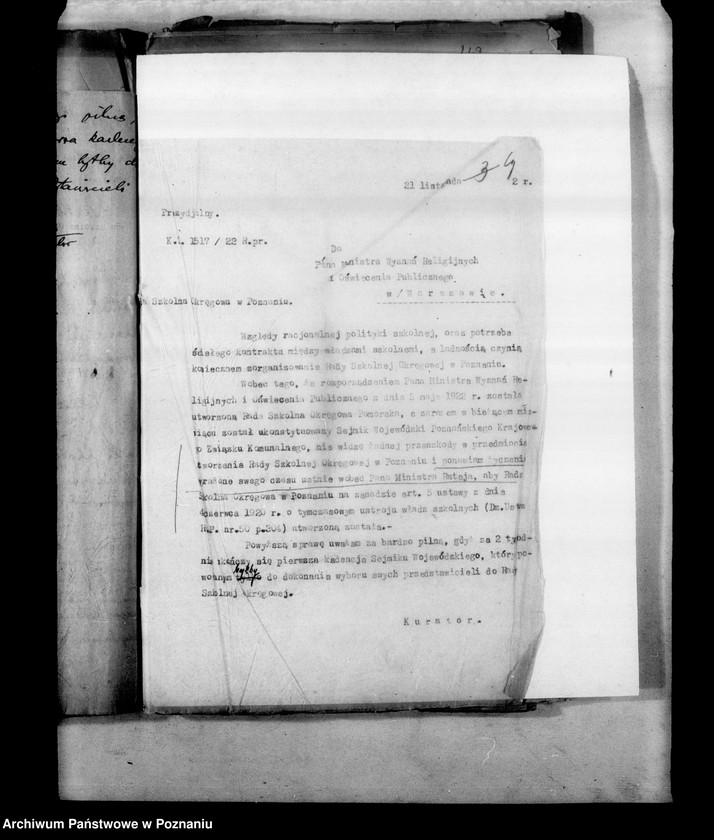 pilna,
kadenc
byłby d
21 listopada 2 r.
34
Prezydjalny.
K.L. 1517 / 22 R.pr.
Do
Pana Ministra Wyznań Religijnych
i Oświecenia Publicznego
w/Warszawie.
Szkolna Okręgowa w Poznaniu.
Względy racjonalnej polityki szkolnej, oraz potrzeba
ścisłego kontraktu między władzami szkolnemi, a ludnością czynią
koniecznem zorganisowanie Rady Szkolnej Okręgowej w Poznaniu.
Wobec tego, że rozporządzeniem Pana Ministra Wyznań Re-
ligijnych i Oświecenia Publicznego z dnia 5 maja 1922 r. została
utworzona Rada Szkolna Okręgowa Pomorska, a zarazem w bieżącem mie-
siącu został ukonstytuowany Sejmik Wojewódzki Poznańskiego Krajowe-
go Związku Komunalnego, nie widzę żadnej przeszkody w przedmiocie
tworzenia Rady Szkolnej Okręgowej w Poznaniu i ponawiam życzenie
yrażone swego czasu ustnie wobec Pana Ministra Rataja, aby Rada
Szkolna Okręgowa w Poznaniu na zasadzie art. 5 ustawy z dnia
4 czerwca 1920 r. o tymczasowym ustroju władz szkolnych (Dz.Ustw
R.P. nr.50 p.304) utworzoną została.-
Powyższą sprawę uważam za bardzo pilną, gdyż za 2 tygod-
nie kończy się pierwsza kadencja Sejmiku Wojewódzkiego, który po-
wołanym byłby do dokonania wyboru swych przedstawicieli do Rady
Szkolnej Okręgowej.
Kurator.
Archiwum Państwowe w Poznaniu